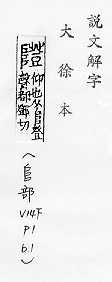 說文解字
大徐本
隥
仰也从𨸏登
聲都鄧切
(𨸏部
V14下
P1
b.1)